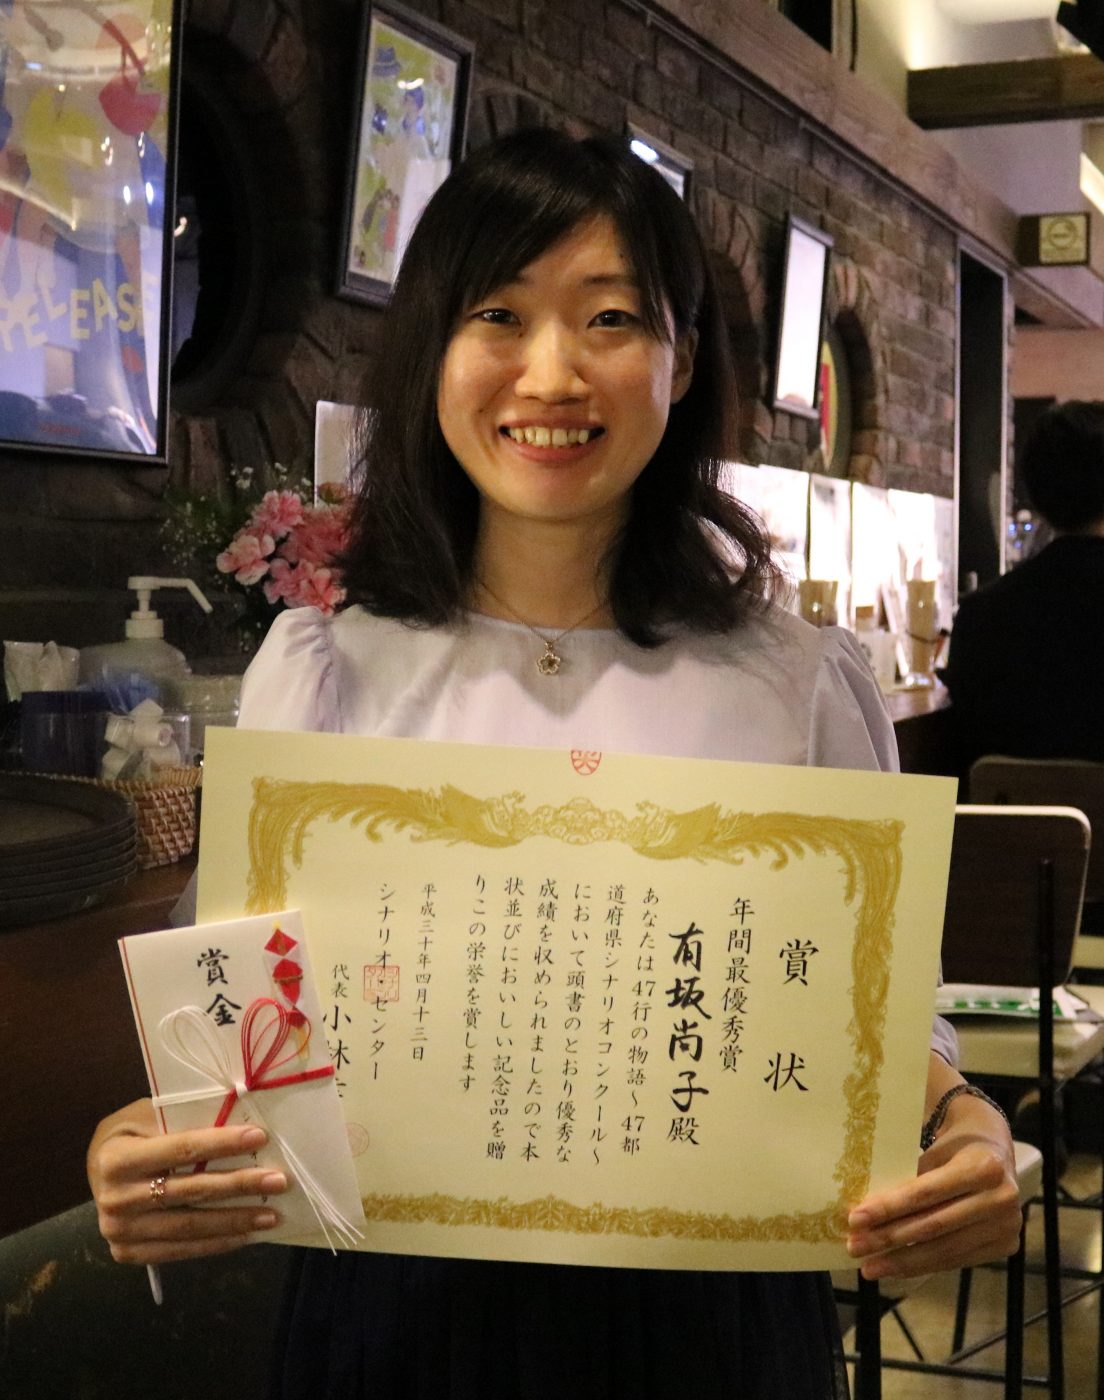 賞状
年間最優秀賞
有坂尚子殿
あなたは47行の物語～47都
道府県シナリオコンクール～
において頭書のとおり優秀な
成績を収められましたので本
状並びにおいしい記念品を贈
りこの栄誉を賞します
平成三十年四月十三日
シナリオ・センター
代表 小林
賞金
RELEASE